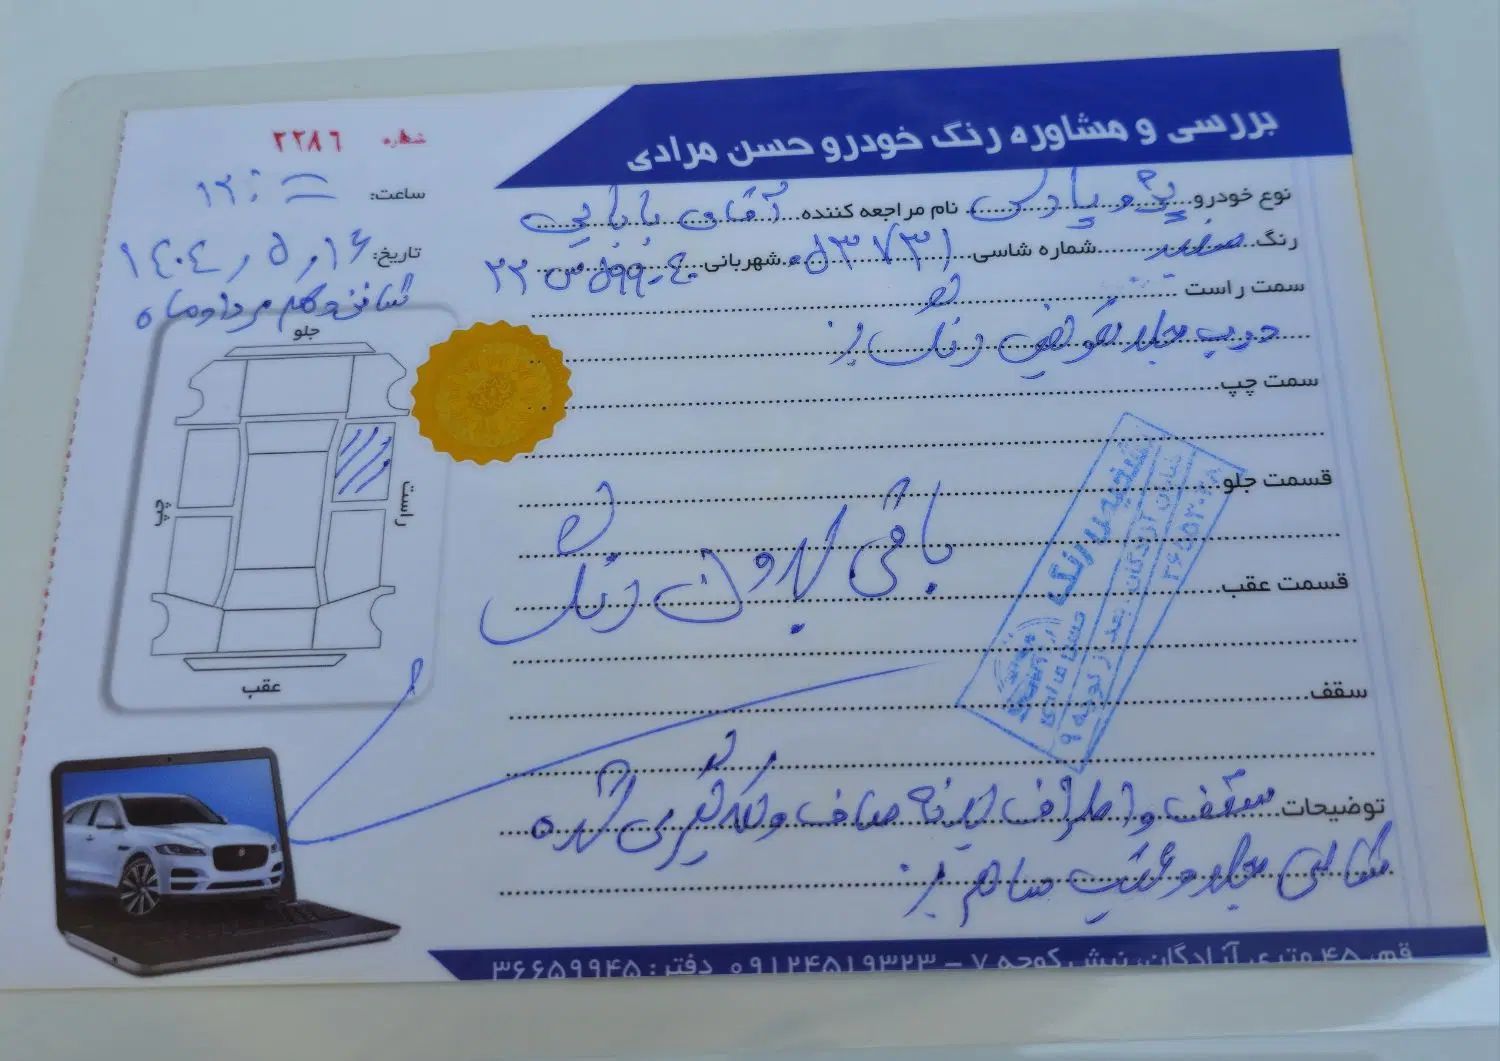 بررسی و مشاوره رنگ خودرو حسن مرادی
شماره ۲۲۸۶
ساعت: ۱۲:۰۰
تاریخ: ۱۴۰۴٫۵٫۱۶
شانزدهم مرداد ماه
نوع خودرو پژو پارس نام مراجعه کننده آقای بابایی
رنگ سفید شماره شاسی ۵۳۷۳۱ شهربانی
سمت راست
درب جلو تعویض رنگ
سمت چپ
قسمت جلو
باقی بدون رنگ
قسمت عقب
سقف
توضیحات سقف و اطراف صاف و لکه گیری شده
شاسی جلو و عقب سالم
جلو
راست
چپ
عقب
کارشناس رنگ
حسن مرادی
قم، ۴۵ متری آزادگان، نبش کوچه ۷ – ۰۹۱۲۴۵۱۹۳۲۳ دفتر: ۳۶۶۵۹۹۴۵